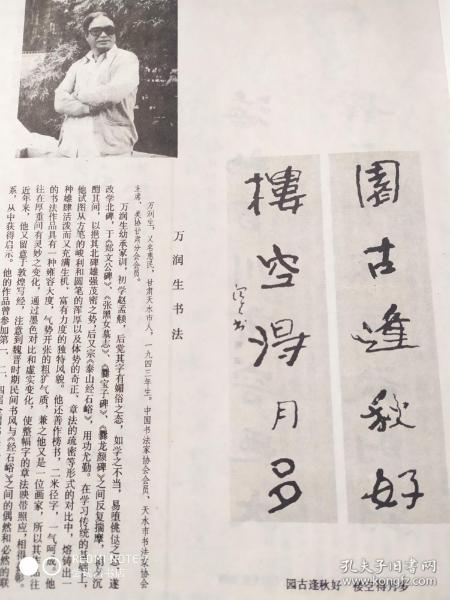 園古逢秋好
樓空得月多
园古逢秋好 楼空得月多
万润生书法
万润生，又名惠民，甘肃天水市人，一九四三年生。中国书法家协会会员、天水市书法家协会
主席，美协甘肃分会会员。
万润生幼承家训，初学赵孟頫，后觉其字有媚俗之态，如学之不当，易堕佻佻之
改学北碑，于《郑文公碑》、《张黑女墓志》、《爨宝子碑》、《爨龙颜碑》之间反复揣摩，
酣其间，以挹其北碑雄强茂密之势；后又宗《泰山经石峪》，用功尤勤。在学习传统的基础上，
他试图从方笔的峻利和圆笔的浑厚以及体势的奇正、章法的疏密等形式的对比中，熔铸出一
种雄肆活泼而又充满生机，富有力度的独特风貌。他还善作榜书，二米径字，一气呵成
的书法作品具有一种雍容大度，气势开张的粗犷气质，兼之他又是一位画家，所以其作品往
往在厚重间有灵妙之变化，通过墨色对比和虚实变化，使整幅字的章法映带照应，相得
近年来，他又留意于敦煌写经，注意到魏晋时期民间书风与《经石峪》之间的偶然和必然的联
系，从中获得启示。他的作品曾参加第一、二、四届全国
REDMI NOTE
孔夫子旧书网